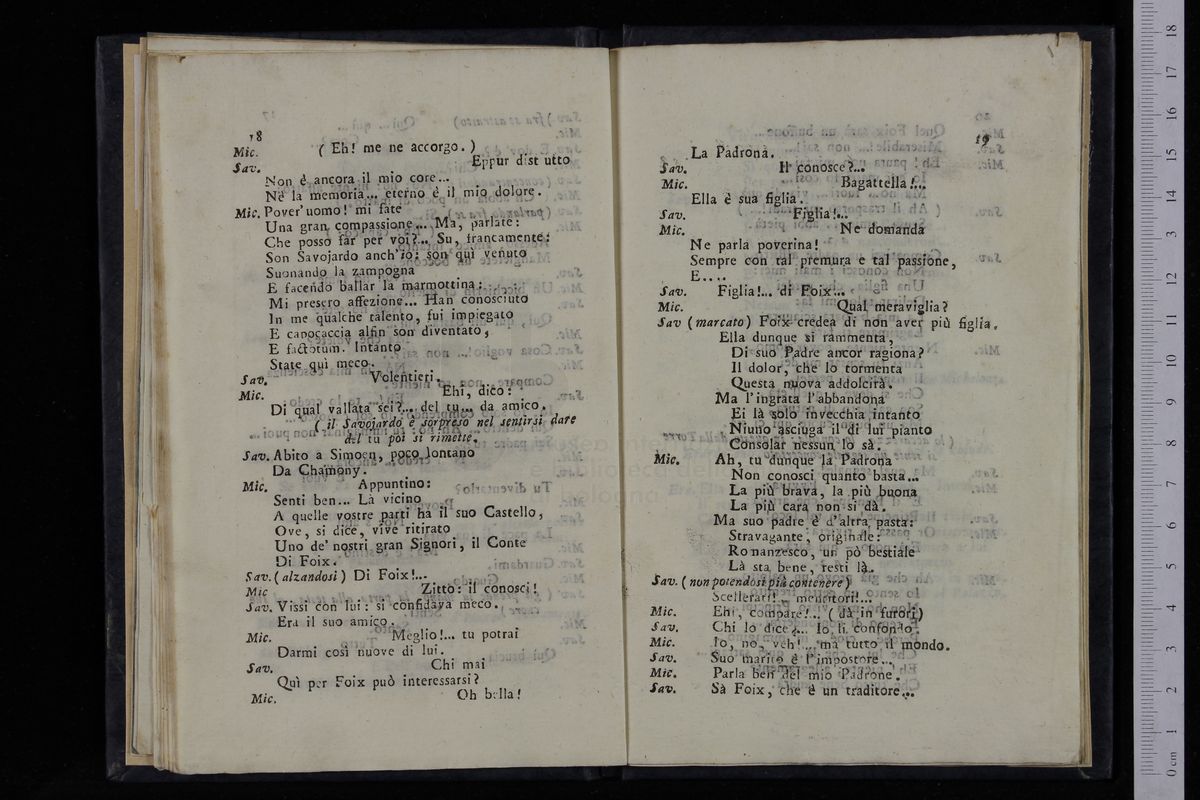 18
Mic. ( Eh! me ne accorgo. )
Sav. Eppur dist utto
Non è ancora il mio core...
Nè la memoria... eterno è il mio dolore.
Mic. Pover'uomo! mi fate
Una gran compassione... Ma, parlate:
Che posso far per voi?... Su, francamente:
Son Savojardo anch'io: son quì venuto
Suonando la zampogna
E facendo ballar la marmottina:
Mi presero affezione... Han conosciuto
In me qualche talento, fui impiegato
E capocaccia alfin son diventato,
E factotum. Intanto
State quì meco.
Sav. Volentieri.
Mic. Ehi, dico:
Di qual vallata sei?... del tu... da amico.
( il Savojardo è sorpreso nel sentirsi dare
del tu poi si rimette.
Sav. Abito a Simoen, poco lontano
Da Chamony.
Mic. Appuntino:
Senti ben... Là vicino
A quelle vostre parti ha il suo Castello,
Ove, si dice, vive ritirato
Uno de' nostri gran Signori, il Conte
Di Foix.
Sav. (alzandosi) Di Foix!...
Mic Zitto: il conosci!
Sav. Vissi con lui: si confidava meco.
Era il suo amico.
Mic. Meglio!... tu potrai
Darmi così nuove di lui.
Sav. Chi mai
Quì per Foix può interessarsi?
Mic. Oh bella!
19
La Padrona.
Sav. Il conosce?...
Mic. Bagattella!...
Ella è sua figlia.
Sav. Figlia!...
Mic. Ne domanda
Ne parla poverina!
Sempre con tal premura e tal passione,
E....
Sav. Figlia!... di Foix...
Mic. Qual meraviglia?
Sav (marcato) Foix credea di non aver più figlia.
Ella dunque si rammenta,
Di suo Padre ancor ragiona?
Il dolor, che lo tormenta
Questa nuova addolcirà.
Ma l'ingrata l'abbandona
Ei là solo invecchia intanto
Niuno asciuga il di lui pianto
Consolar nessun lo sà.
Mic. Ah, tu dunque la Padrona
Non conosci quanto basta...
La più brava, la più buona
La più cara non si dà.
Ma suo padre è d'altra pasta:
Stravagante, originale:
Romanzesco, un pò bestiale
Là sta bene, resti là.
Sav. (non potendosi più contenere)
Scellerati!... mentitori!...
Mic. Ehi, compare!... ( dà in furori)
Sav. Chi lo dice?... Io li confondo.
Mic. Io, no, veh!... ma tutto il mondo.
Sav. Suo marito è l'impostore...
Mic. Parla ben del mio Padrone.
Sav. Sà Foix, che è un traditore...